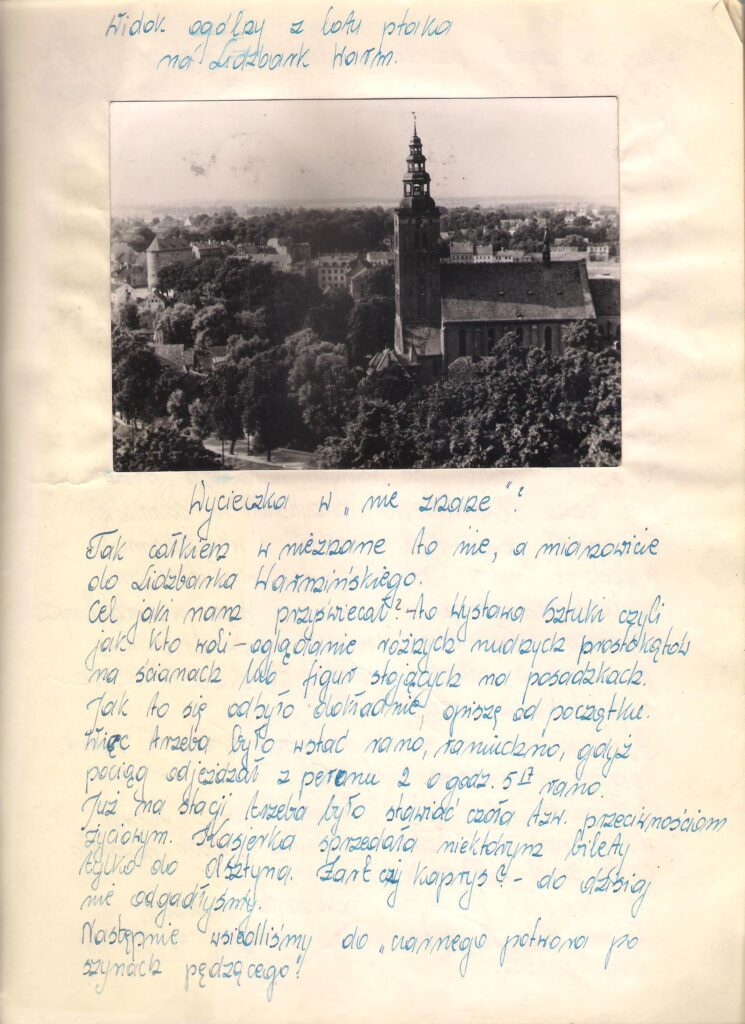 Widok ogólny z lotu ptaka
na Lidzbark Warm.
Wycieczka w „nie znane"?
Tak całkiem w nieznane to nie, a mianowicie
do Lidzbarka Warmińskiego.
Cel jaki nam przyświecał? - to Wystawa Sztuki czyli
jak kto woli - oglądanie różnych nudnych prostokątów
na ścianach lub figur stojących na posadzkach.
Jak to się odbyło dokładnie, opiszę od początku.
Więc trzeba było wstać rano, raniuchno, gdyż
pociąg odjeżdżał z peronu 2 o godz. 5 17 rano.
Już na stacji trzeba było stawiać czoła tzw. przeciwnościom
życiowym. Kasjerka sprzedała niektórym bilety
tylko do Olsztyna. Żart czy kaprys? - do dzisiaj
nie odgadłyśmy.
Następnie wsiedliśmy do „czarnego potwora po
szynach pędzącego"!